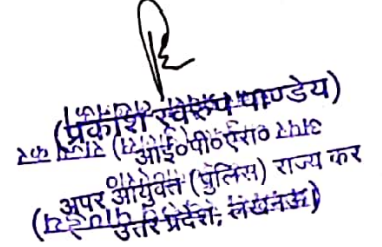 (प्रकाश स्वरूप पाण्डेय)
आई०पी०एस०
अपर आयुक्त (पुलिस) राज्य कर
उत्तर प्रदेश, लखनऊ